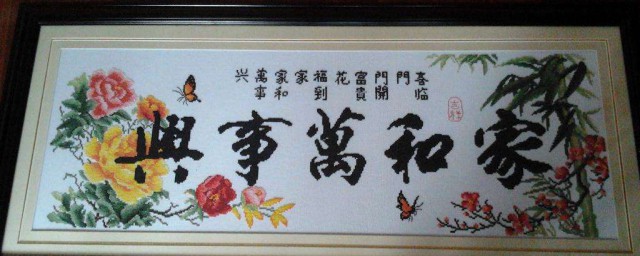 喜临
門
門開
富貴
花
福到
家
家和
萬事
兴
家和萬事興